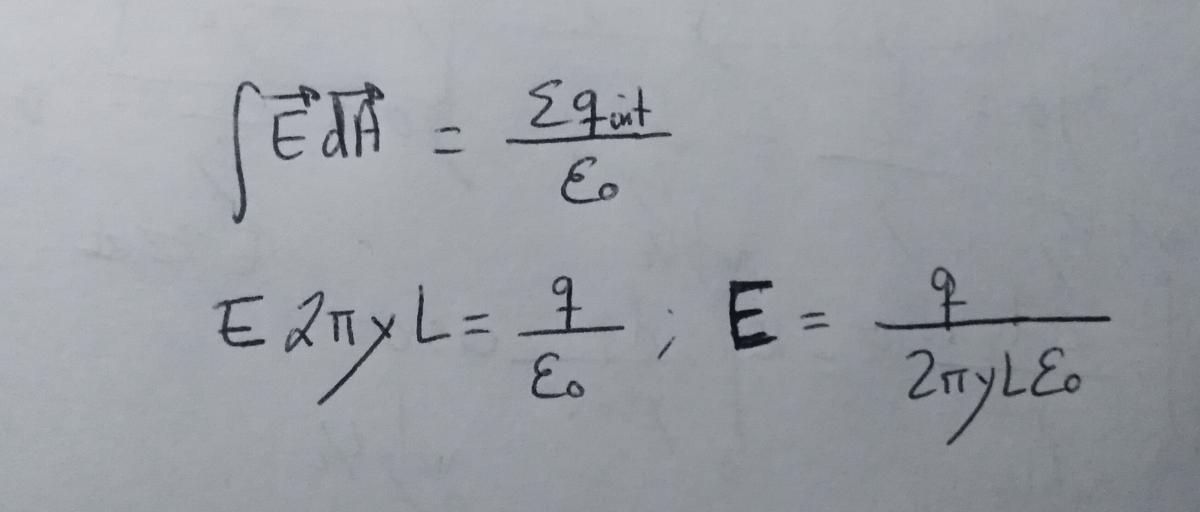 ∫ E⃗ dA⃗ = Σqint / ε₀
E 2πyL = q / ε₀ ; E = q / 2πyLε₀